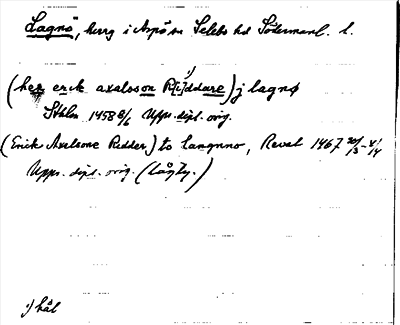 Lagnö, herrg i Aspö sn Selebo hd Södermanl. l.
(her erik axalsson R[i]ddare)¹⁾ j lagnø
Sthlm 1458 8/6 Upps. dipl. orig.
(Erick Axelsone Redder) to Langnno, Reval 1467 20/3 - 4/4
Upps. dipl. orig. (Lågty.)
¹⁾ hål